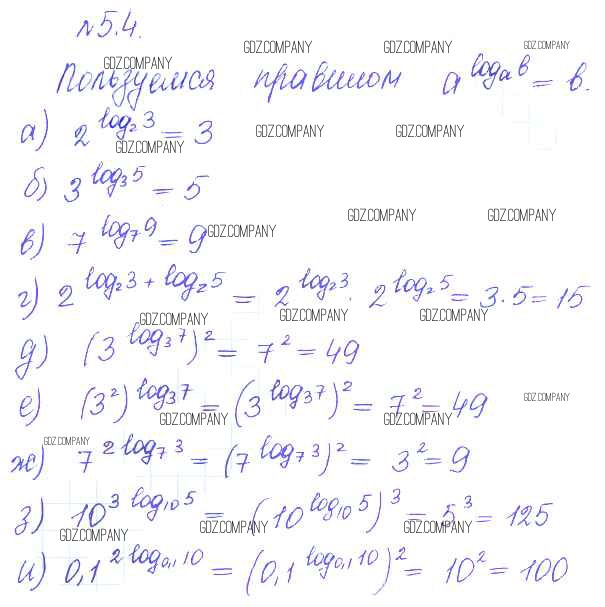 №5.4.
Пользуемся правилом a^{log_a b} = b.
а) 2^{log_2 3} = 3
б) 3^{log_3 5} = 5
в) 7^{log_7 9} = 9
г) 2^{log_2 3 + log_2 5} = 2^{log_2 3} · 2^{log_2 5} = 3·5 = 15
д) (3^{log_3 7})^2 = 7^2 = 49
е) (3^2)^{log_3 7} = (3^{log_3 7})^2 = 7^2 = 49
ж) 7^{2 log_7 3} = (7^{log_7 3})^2 = 3^2 = 9
з) 10^{3 log_{10} 5} = (10^{log_{10} 5})^3 = 5^3 = 125
и) 0,1^{2 log_{0,1} 10} = (0,1^{log_{0,1} 10})^2 = 10^2 = 100
GDZ.COMPANY GDZ.COMPANY GDZ.COMPANY GDZ.COMPANY
GDZ.COMPANY GDZ.COMPANY GDZ.COMPANY
GDZ.COMPANY GDZ.COMPANY GDZ.COMPANY
GDZ.COMPANY GDZ.COMPANY GDZ.COMPANY
GDZ.COMPANY GDZ.COMPANY GDZ.COMPANY
GDZ.COMPANY
GDZ.COMPANY GDZ.COMPANY GDZ.COMPANY